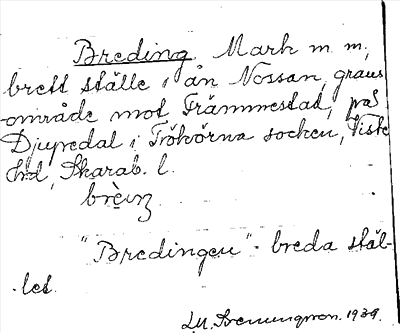 Breding. Mark m. m.,
brett ställe i ån Nossan, gräns
-område mot Främmestad, på
Djupedal i Tråvörna socken, Viste
hd, Skarab. l.
"Bredingen" - breda stäl-
-let.
1939.